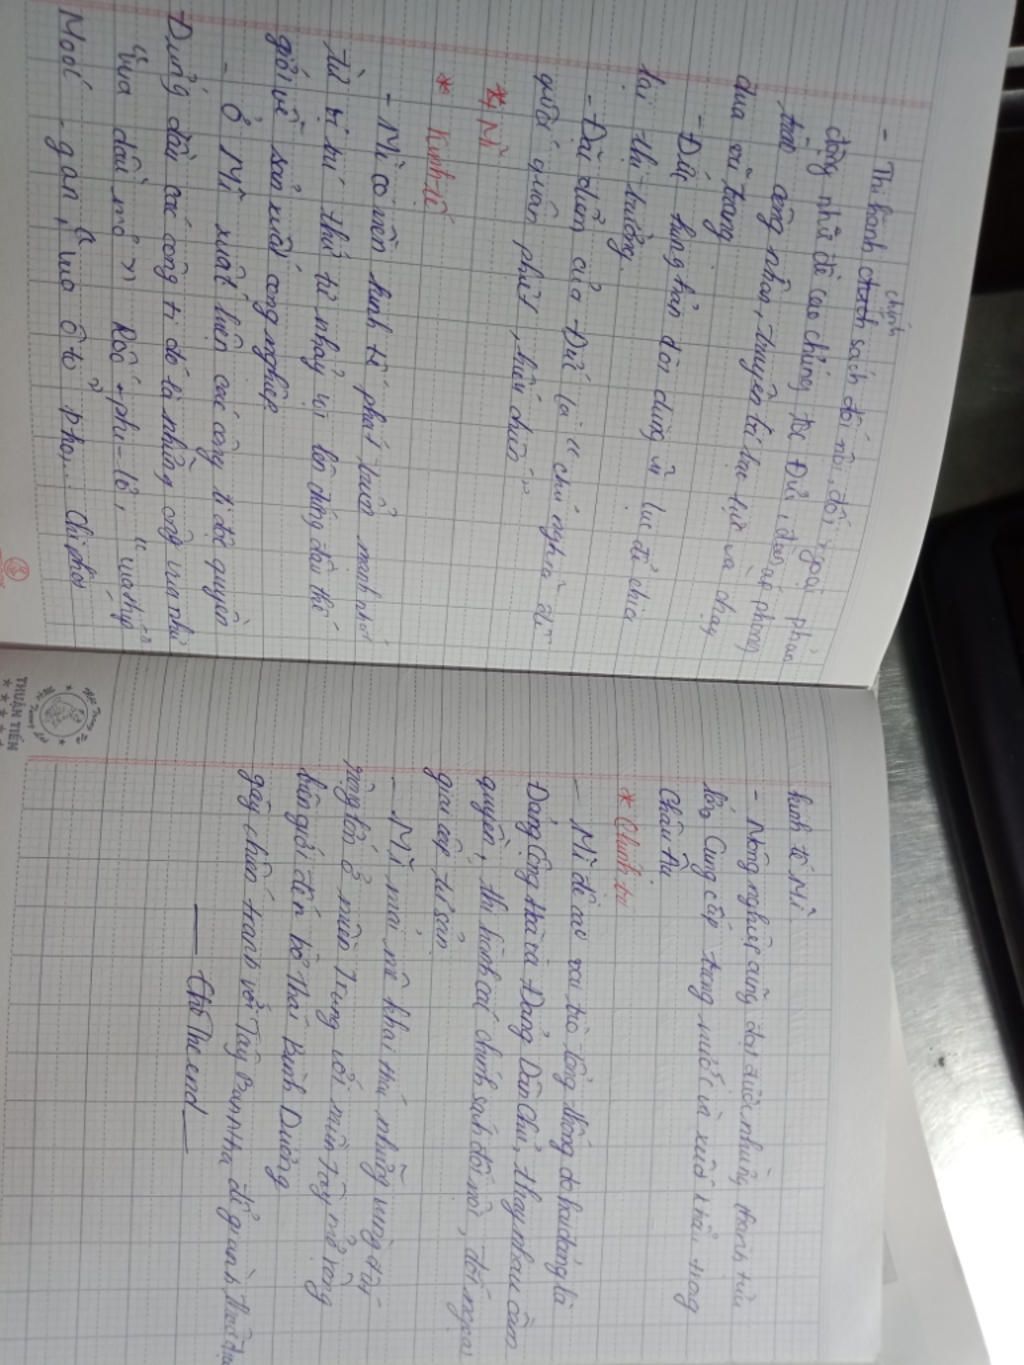 - Thi hành chính sách đối nội, đối ngoại phản
động như đề cao chủng tộc Đức, đàn áp phong
trào công nhân, truyền bá bạo lực và chạy
đua vũ trang
- Đức hung hãn đòi dùng vũ lực để chia
lại thị trường.
- Đặc điểm của Đức là "chủ nghĩa đế
quốc quân phiệt, hiếu chiến"
Mĩ
* Kinh tế
- Mĩ có nền kinh tế phát triển mạnh nhất
từ vị trí thứ tư nhảy vọt lên đứng đầu thế
giới về sản xuất công nghiệp
- Ở Mĩ xuất hiện các công ti độc quyền
Đứng đầu các công ti đó là những ông vua như
"vua dầu mỏ" Rốc-phe-lơ, "vua thép"
Moóc-gan, "vua ô tô" pho,... chi phối
kinh tế Mĩ
- Nông nghiệp cũng đạt được những thành tựu
lớn Cung cấp trong nước và xuất khẩu sang
Châu Âu
* Chính trị
- Mĩ đề cao vai trò tổng thống do hai đảng là
Đảng Cộng Hoà và Đảng Dân Chủ, thay nhau cầm
quyền, thi hành các chính sách đối nội, đối ngoại
giai cấp tư sản
- Mĩ mải mê khai thác những vùng đất
rộng lớn ở miền Trung với miền Tây mở rộng
biên giới đến bờ Thái Bình Dương
gây chiến tranh với Tây Ban Nha để giành thuộc địa
The end
THUẬN TIẾN